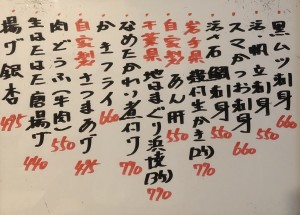 黒ムツ刺身 660
活・帆立刺身 550
スマかつお刺身 660
活〆石鯛刺身 550
岩手県 殻付生かき(2ヶ) 770
自家製 あん肝 550
千葉県 地はまぐり浜焼(3ヶ) 770
なめたかれい煮付け 770
かきフライ 660
自家製 さつまあげ 495
肉どうふ(牛肉) 550
生はたはた唐揚げ 440
揚げ銀杏 495